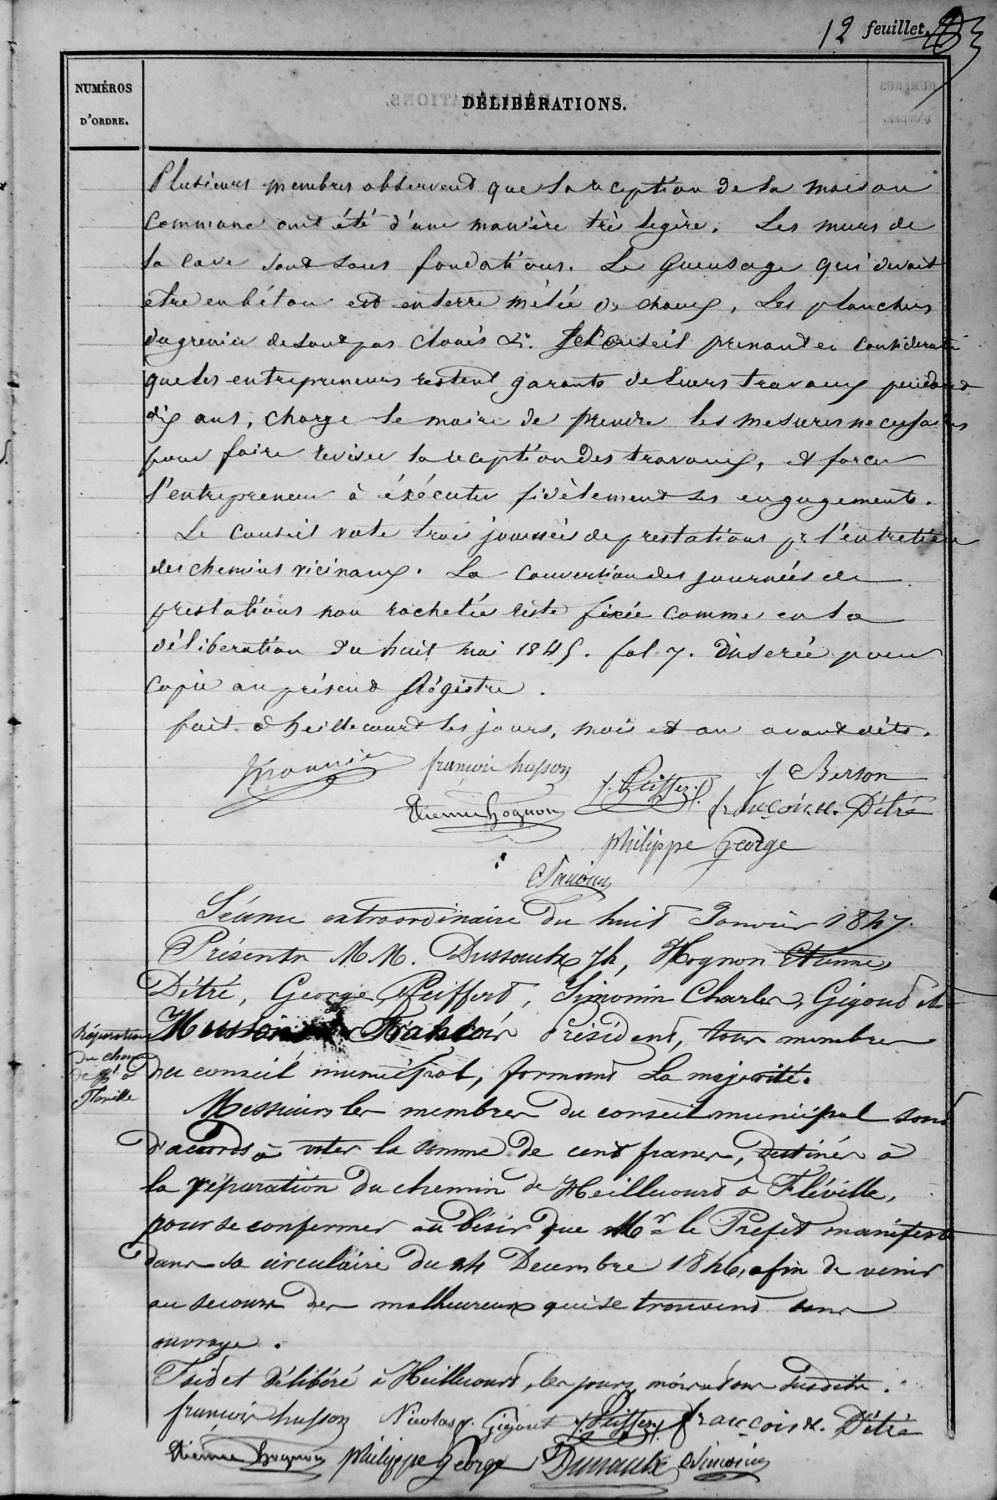 12 feuillet.
NUMÉROS
D'ORDRE.
DÉLIBÉRATIONS.
Plusieurs membres observent que la reception de la maison
commune ont été d'une manière très legère. Les murs de
la cave sont sans fondations. Le gueusage qui devait
etre en béton est en terre mêlée de chaux, Les planchers
du grenier ne sont pas cloués &. Le Conseil prenant en considerati
que les entrepreneurs restent garants de leurs travaux pendant
dix ans, charge le maire de prendre les mesures necessaires
pour faire reviser la reception des travaux, et forcer
l'entrepreneur à éxécuter fidèlement ses engagements.
Le conseil vote trois journées de prestations pr l'entretien
des chemins vicinaux. La convertion des journées de
prestations non rachetées reste fixée comme en la
déliberation du huit mai 1845. fol. 7. inserée pour
copie au présent Régistre.
fait à heillecourt les jours, mois et an avant dits.
françois husson
J. Peiffert
J Berson
Etienne hognon
françois X. Ditré
philippe George
Simonin
Séance extraordinaire du huit Janvier 1847.
Présents M M. Dussaulx Jh, Hognon Etienne,
Ditré, George Peiffert, Simonin Charles, Gigout et
Husson François Président, tous membres
du conseil municipal, formant la majorité.
Réparation
du chemin
de Ht à
Fléville
Messieurs les membres du conseil municipal sont
d'accords à voter la somme de cent francs, destinés à
la réparation du chemin de Heillecourt à Fléville,
pour se conformer au désir que Mr le Prefet manifeste
dans sa circulaire du 24 Decembre 1846, afin de venir
au secours des malheureux qui se trouvent sans
ouvrage.
Fait et délibéré à Heillecourt, les jours, mois et an susdits.
françois husson Nicolas Gigout J. Peiffert françois X. Ditré
Etienne hognon philippe George Dussaulx Simonin